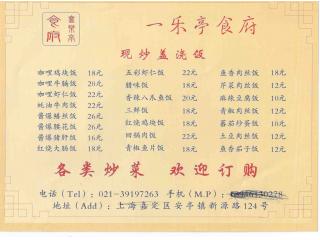 食府
喜乐亭
一乐亭食府
现炒盖浇饭
咖哩鸡块饭 18元 五彩虾仁饭 22元 鱼香肉丝饭 18元
咖哩牛腩饭 20元 腊味饭 18元 芹菜肉丝饭 12元
咖哩虾仁饭 22元 香辣八爪鱼饭 20元 麻辣豆腐饭 10元
蚝油牛肉饭 22元 三鲜饭 18元 青椒肉丝饭 12元
酱爆鳝丝饭 26元 红烧鸡块饭 18元 蕃茄炒蛋饭 10元
酱爆腰花饭 26元 回锅肉饭 22元 土豆肉丝饭 12元
酱爆猪肝饭 16元 青椒鱼片饭 18元 鱼香茄子饭 12元
红烧大肠饭 18元
各类炒菜 欢迎订购
电话（Tel）：021-39197263 手机（M.P）：
地址（Add）：上海嘉定区安亭镇新源路124号